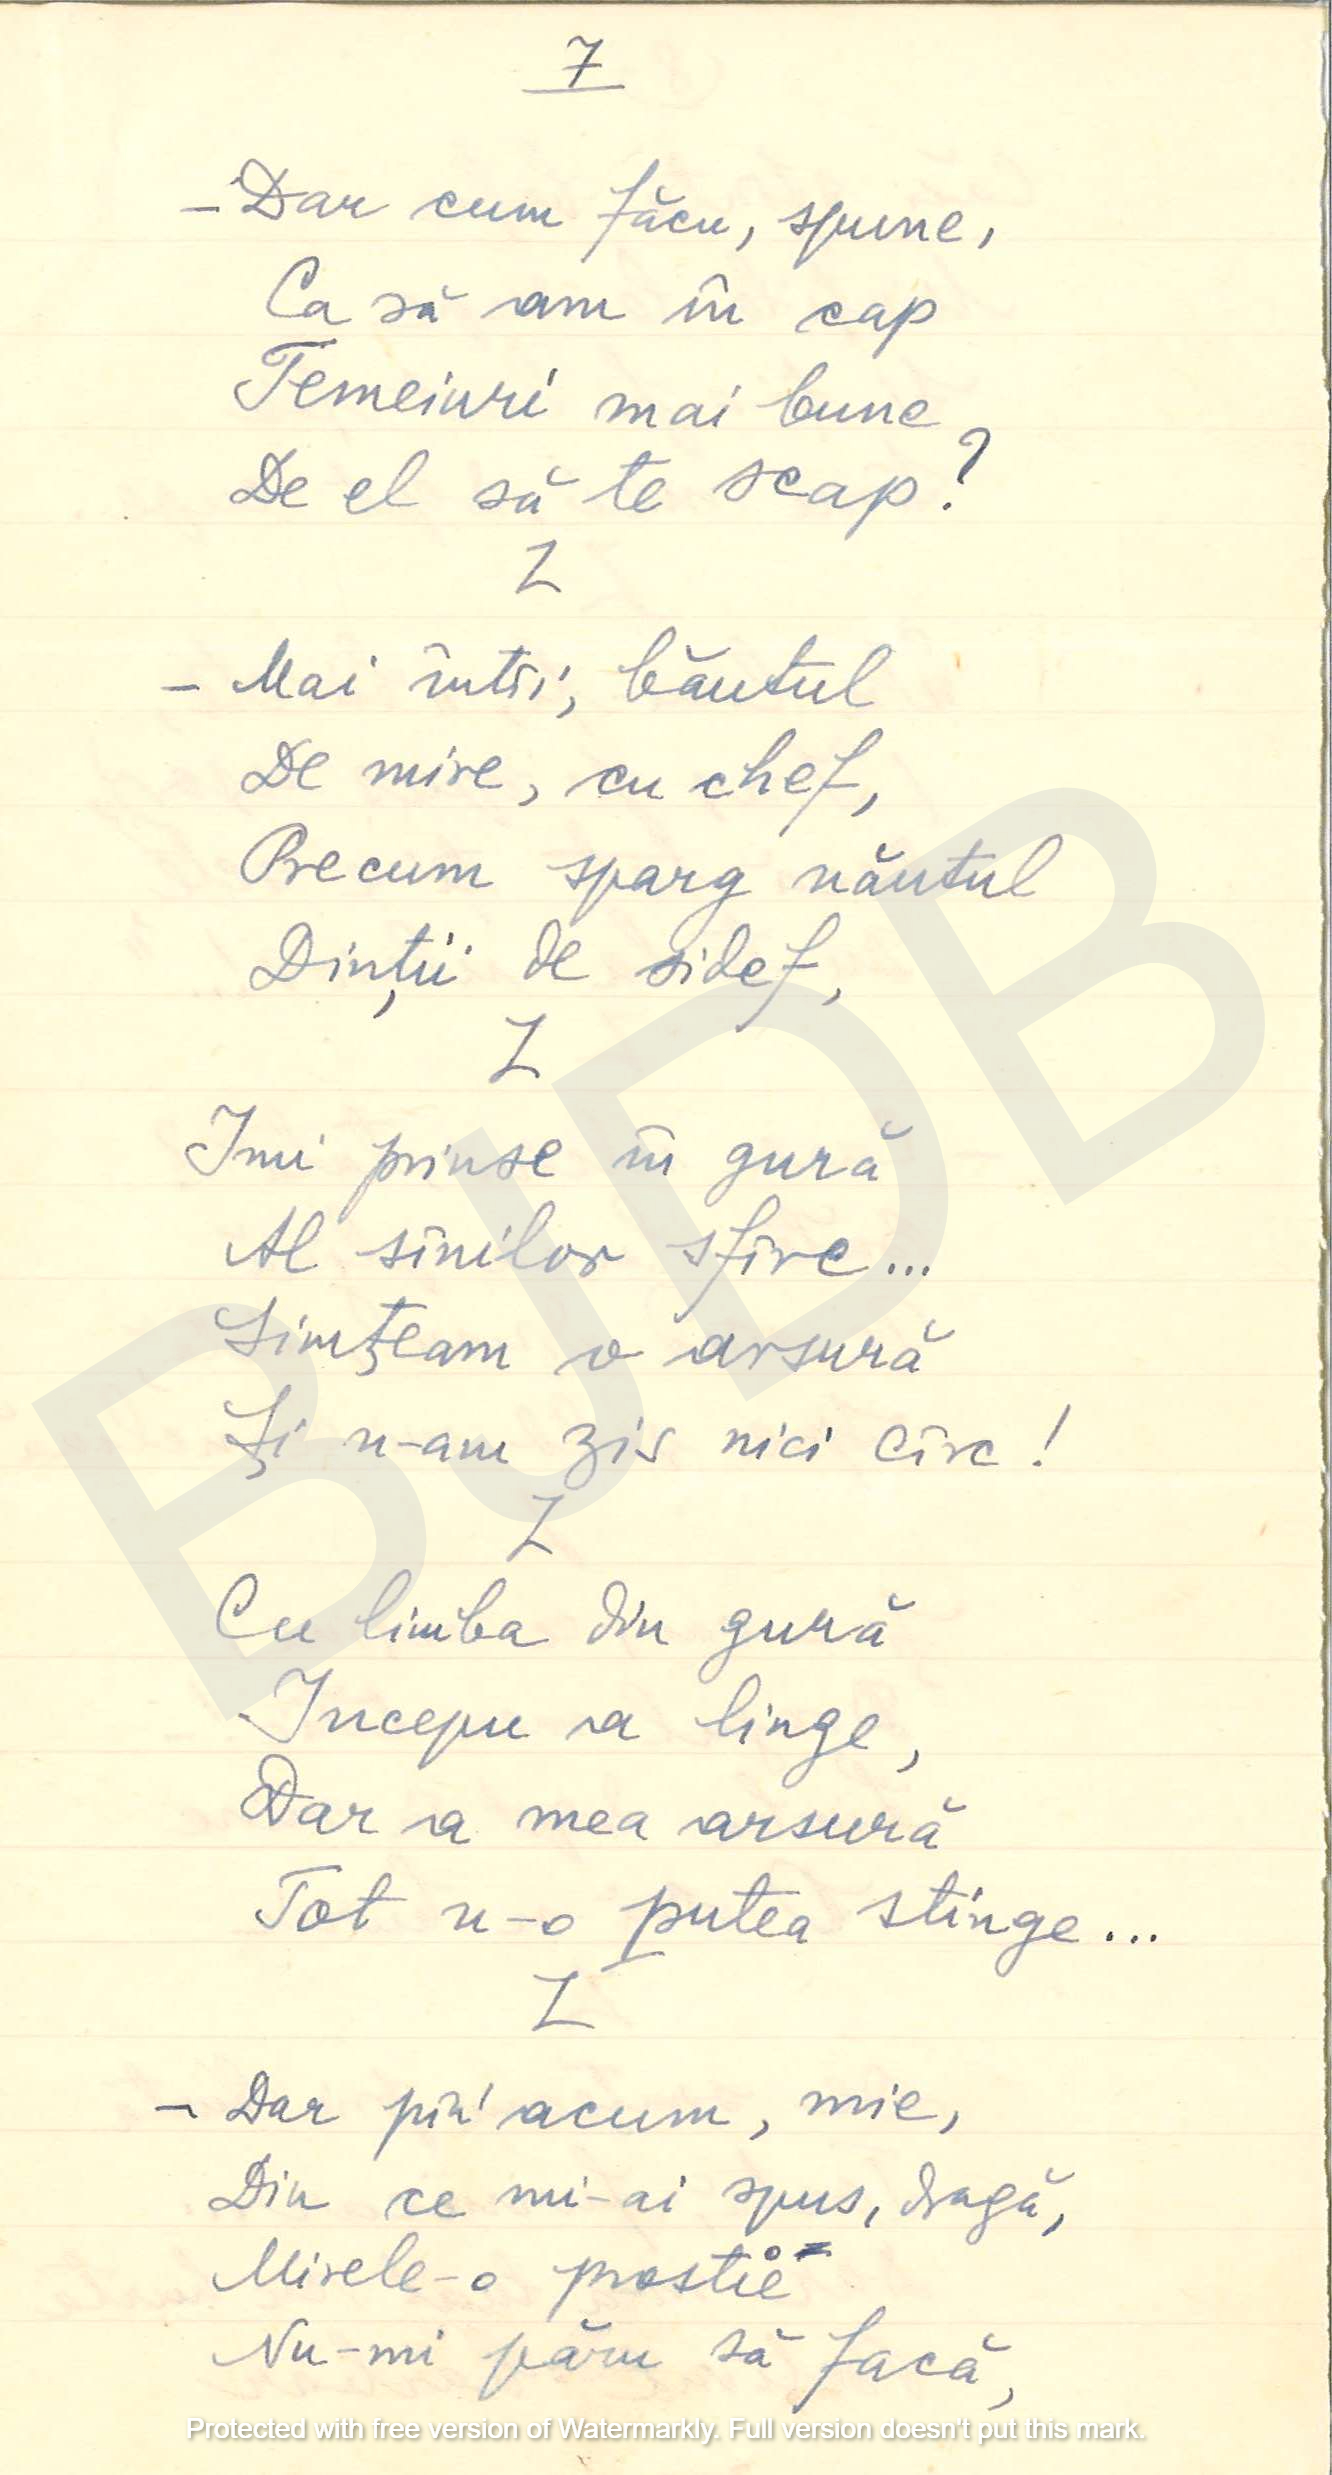 7
- Dar cum făcu, spune,
Ca să am în cap
Temeiuri mai bune
De el să te scap?
Z
- Mai întîi, băutul
De mire, cu chef,
Precum sparg năutul
Dinții de sidef,
Z
Imi prinse în gură
Al sînilor sfîrc...
Simțeam o arsură
Și n-am zis nici cîrc!
Z
Cu limba din gură
Incepu a linge,
Dar a mea arsură
Tot n-o putea stinge...
Z
- Dar pîn' acum, mie,
Din ce mi-ai spus, dragă,
Mirele-o prostie
Nu-mi păru să facă,
BJDB
Protected with free version of Watermarkly. Full version doesn't put this mark.